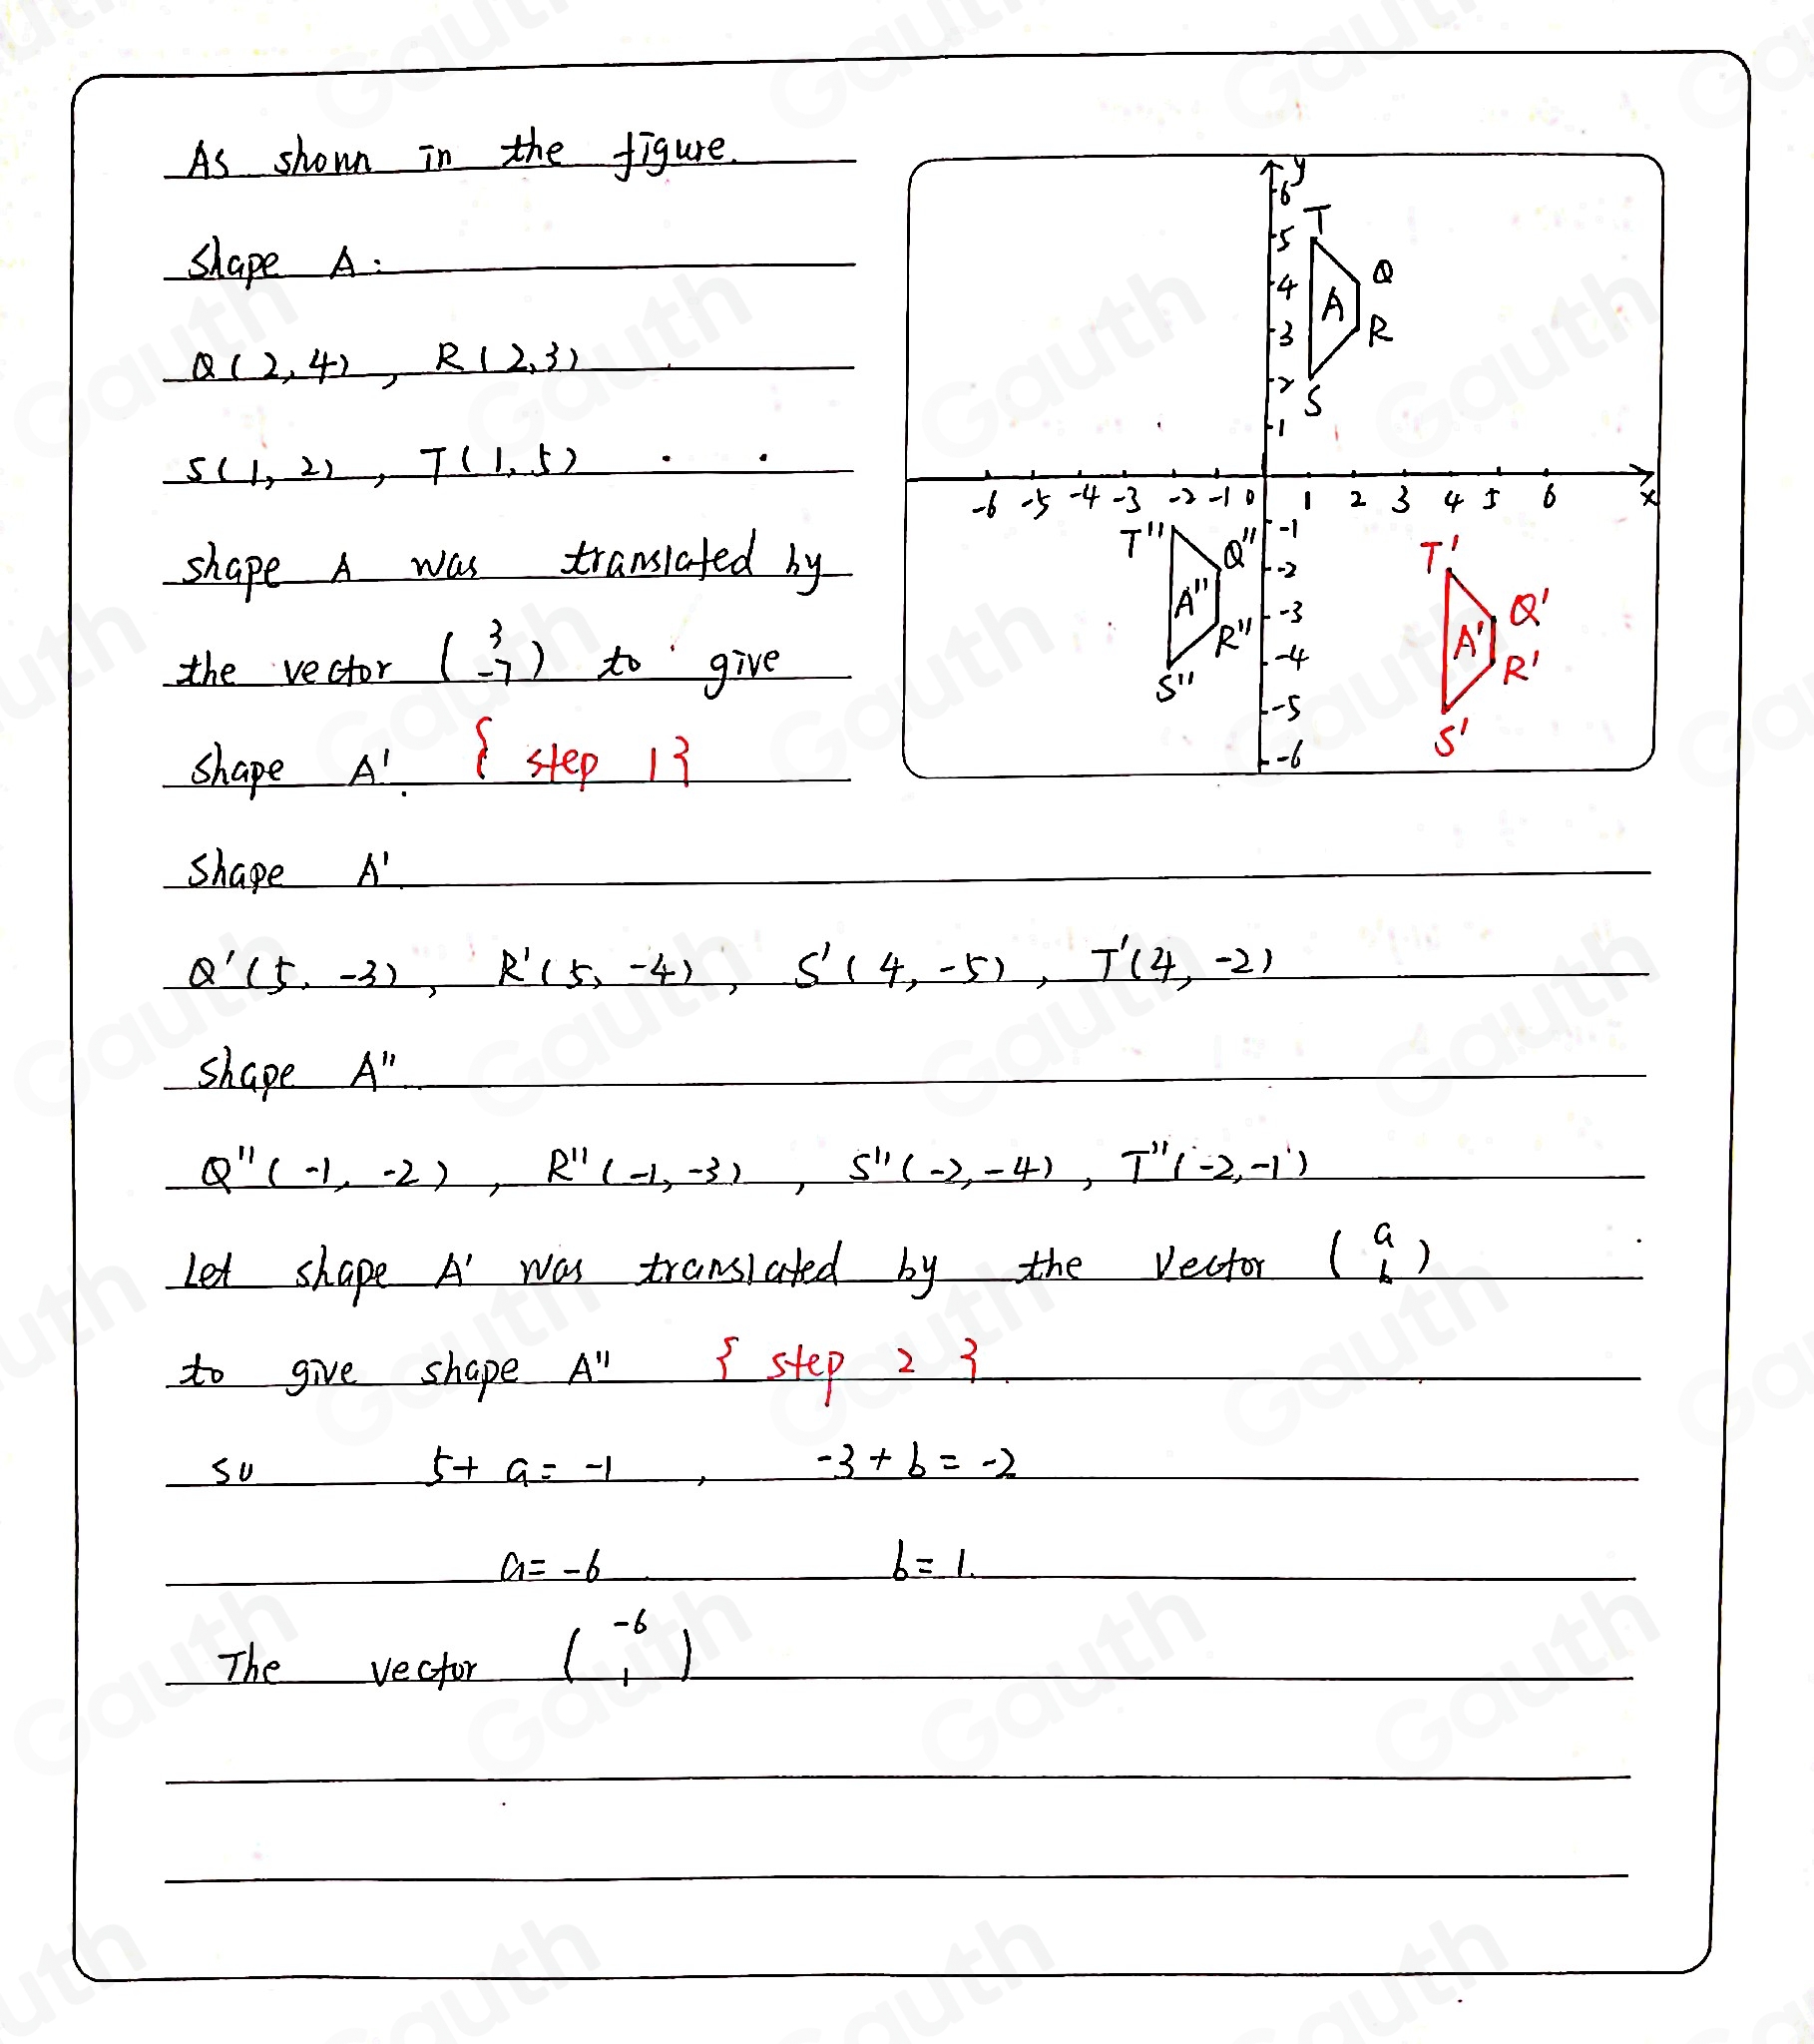 As shown in the figure.
shape A:
Q(2,4), R(2,3)
S(1,2), T(1,5)
shape A was translated by
the vector (3 -7) to give
shape A'. {step 1}
shape A'.
Q'(5,-3), R'(5,-4), S'(4,-5), T'(4,-2)
shape A".
Q"(-1,-2), R"(-1,-3), S"(-2,-4), T"(-2,-1)
Let shape A' was translated by the vector (a b)
to give shape A" {step 2}.
so 5+a=-1, -3+b=-2
a=-6 b=1.
The vector (-6 1)
y
6
T
5
Q
4
A
3
R
2
S
1
-6 -5 -4 -3 -2 -1 0 1 2 3 4 5 6 x
-1
T" Q"
-2
T'
A"
-3
Q'
R"
A'
-4
R'
S"
-5
S'
-6
Gauth